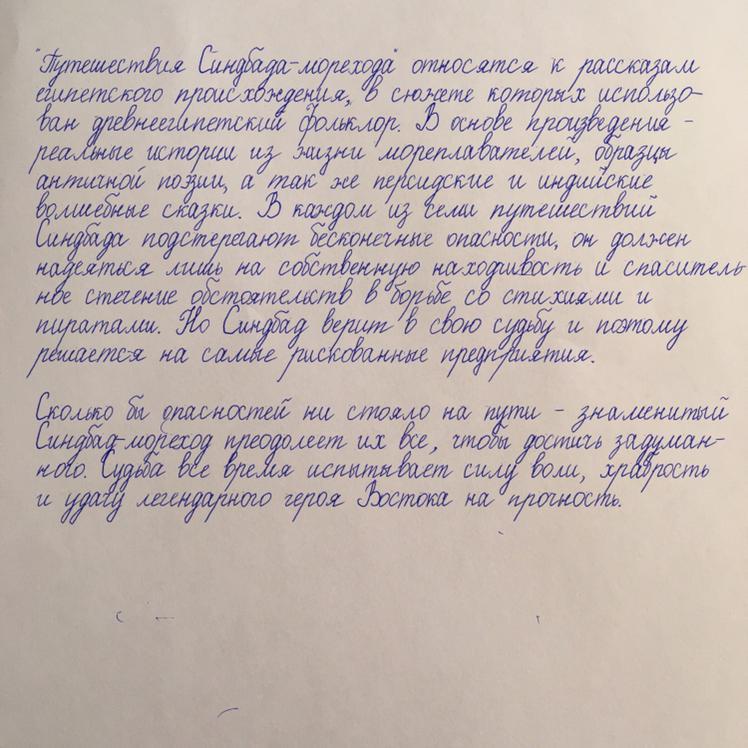 "Путешествия Синдбада-морехода" относятся к рассказам
египетского происхождения, в сюжете которых использо-
ван древнеегипетский фольклор. В основе произведения -
реальные истории из жизни мореплавателей, образцы
античной поэзии, а так же персидские и индийские
волшебные сказки. В каждом из семи путешествий
Синдбада подстерегают бесконечные опасности, он должен
надеяться лишь на собственную находчивость и спаситель-
ное стечение обстоятельств в борьбе со стихиями и
пиратами. Но Синдбад верит в свою судьбу и поэтому
решается на самые рискованные предприятия.
Сколько бы опасностей ни стояло на пути - знаменитый
Синдбад-мореход преодолеет их все, чтобы достичь задуман-
ного. Судьба все время испытывает силу воли, храбрость
и удачу легендарного героя Востока на прочность.